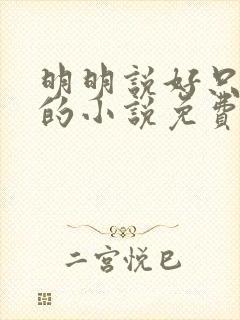 明明説好只
的小説免費
二宮悦巳